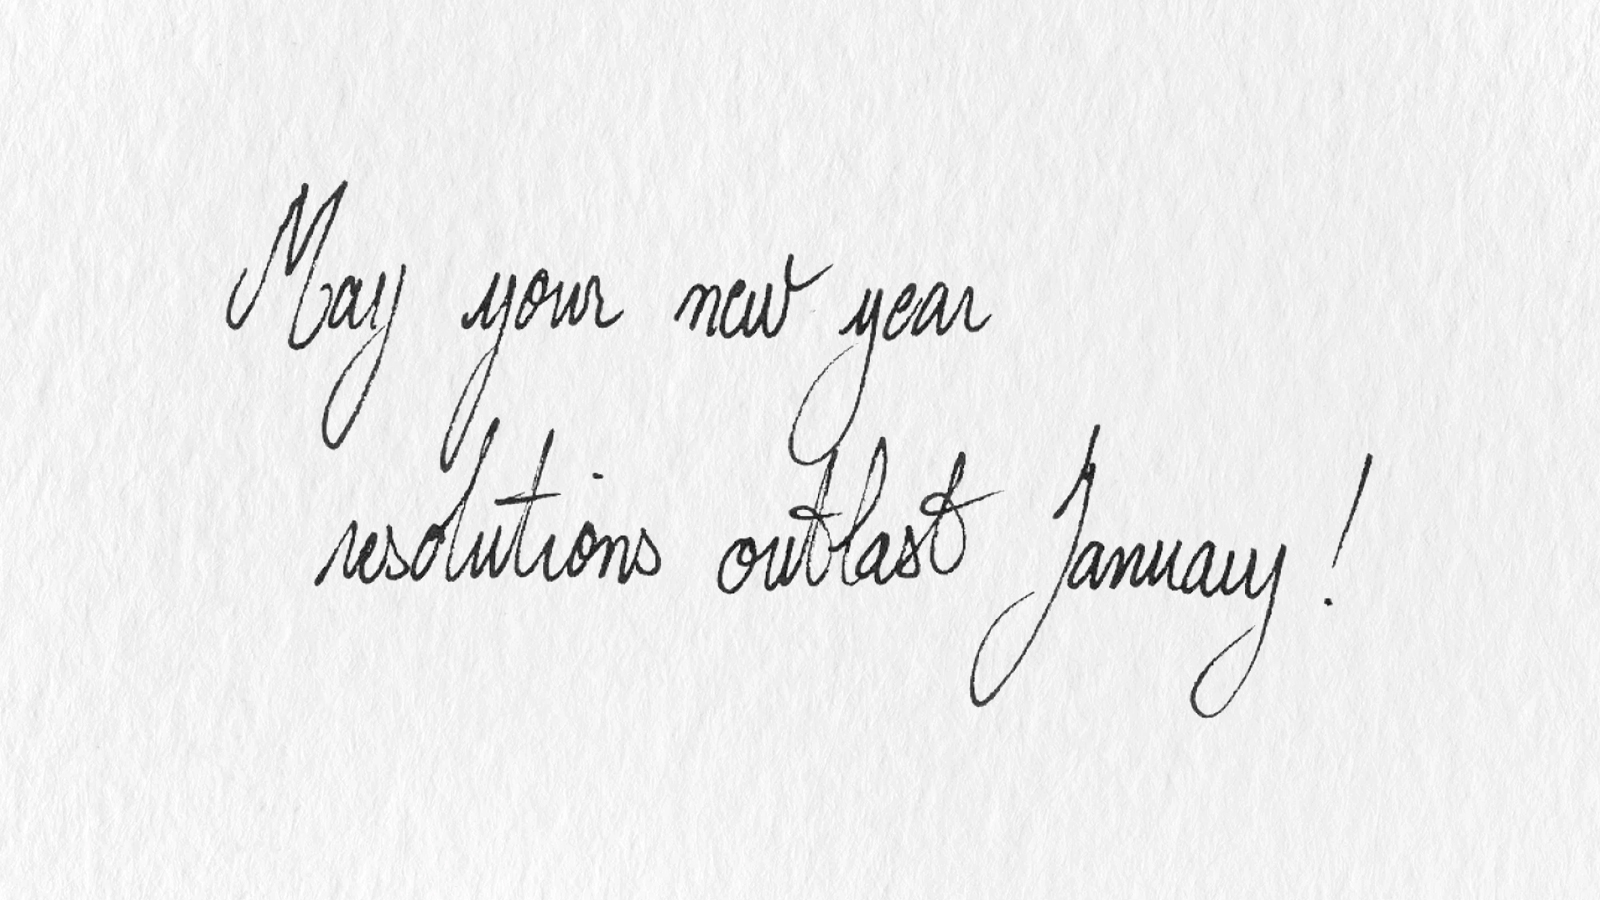 May your new year
resolutions outlast January!